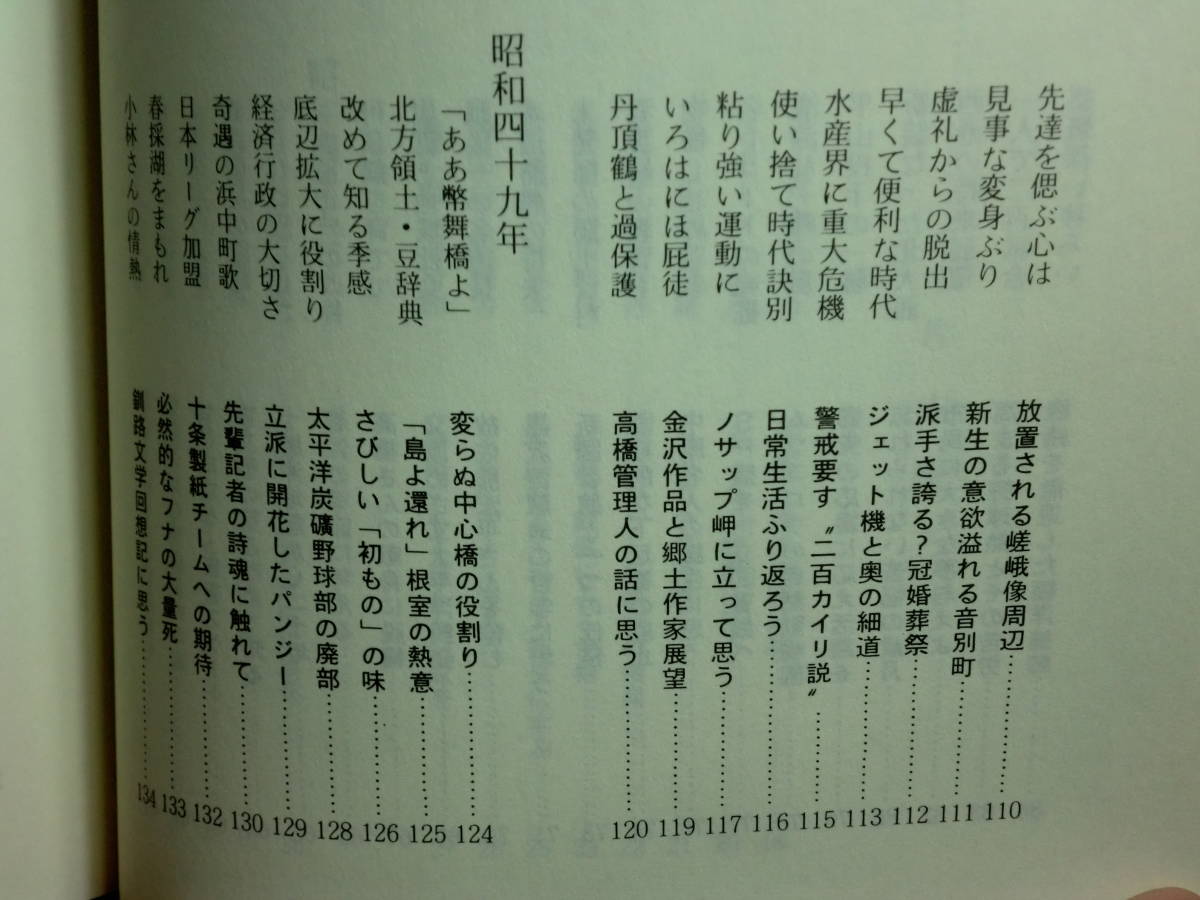 先達を偲ぶ心は 放置される嵯峨像周辺…………110
見事な変身ぶり 新生の意欲溢れる音別町…………111
虚礼からの脱出 派手さ誇る?冠婚葬祭…………112
早くて便利な時代 ジェット機と奥の細道…………113
水産界に重大危機 警戒要す〝二百カイリ説〟…………115
使い捨て時代訣別 日常生活ふり返ろう…………116
粘り強い運動に ノサップ岬に立って思う…………117
いろはにほ屁徒 金沢作品と郷土作家展望…………119
丹頂鶴と過保護 高橋管理人の話に思う…………120
昭和四十九年
「ああ幣舞橋よ」 変らぬ中心橋の役割り…………124
北方領土・豆辞典 「島よ還れ」根室の熱意…………125
改めて知る季感 さびしい「初もの」の味…………126
底辺拡大に役割り 太平洋炭礦野球部の廃部…………128
経済行政の大切さ 立派に開花したパンジー…………129
奇遇の浜中町歌 先輩記者の詩魂に触れて…………130
日本リーグ加盟 十条製紙チームへの期待…………132
春採湖をまもれ 必然的なフナの大量死…………133
小林さんの情熱 釧路文学回想記に思う…………134